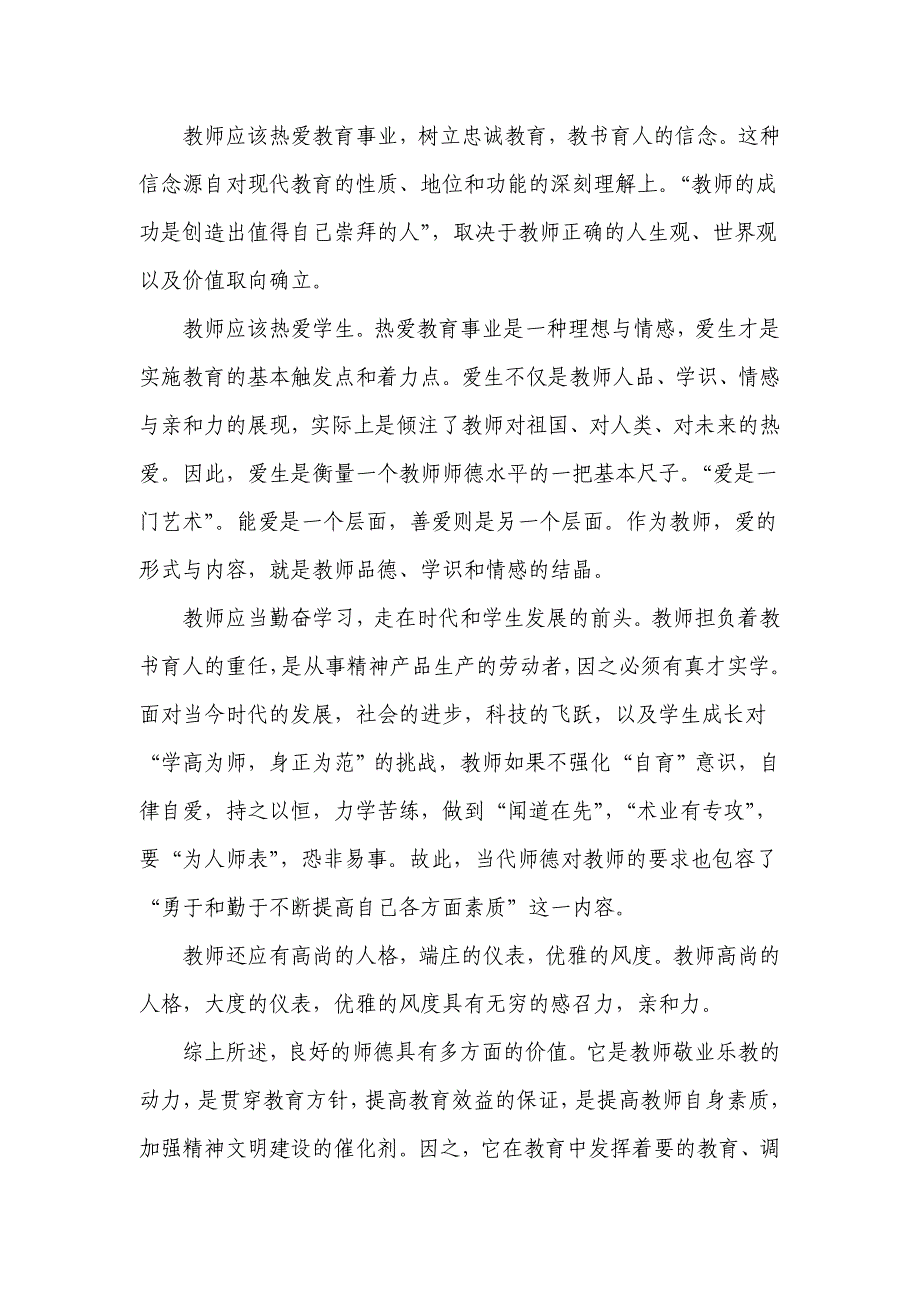 教师应该热爱教育事业，树立忠诚教育，教书育人的信念。这种
信念源自对现代教育的性质、地位和功能的深刻理解上。“教师的成
功是创造出值得自己崇拜的人”，取决于教师正确的人生观、世界观
以及价值取向确立。
教师应该热爱学生。热爱教育事业是一种理想与情感，爱生才是
实施教育的基本触发点和着力点。爱生不仅是教师人品、学识、情感
与亲和力的展现，实际上是倾注了教师对祖国、对人类、对未来的热
爱。因此，爱生是衡量一个教师师德水平的一把基本尺子。“爱是一
门艺术”。能爱是一个层面，善爱则是另一个层面。作为教师，爱的
形式与内容，就是教师品德、学识和情感的结晶。
教师应当勤奋学习，走在时代和学生发展的前头。教师担负着教
书育人的重任，是从事精神产品生产的劳动者，因之必须有真才实学。
面对当今时代的发展，社会的进步，科技的飞跃，以及学生成长对
“学高为师，身正为范”的挑战，教师如果不强化“自育”意识，自
律自爱，持之以恒，力学苦练，做到“闻道在先”，“术业有专攻”，
要“为人师表”，恐非易事。故此，当代师德对教师的要求也包容了
“勇于和勤于不断提高自己各方面素质”这一内容。
教师还应有高尚的人格，端庄的仪表，优雅的风度。教师高尚的
人格，大度的仪表，优雅的风度具有无穷的感召力，亲和力。
综上所述，良好的师德具有多方面的价值。它是教师敬业乐教的
动力，是贯穿教育方针，提高教育效益的保证，是提高教师自身素质，
加强精神文明建设的催化剂。因之，它在教育中发挥着要的教育、调